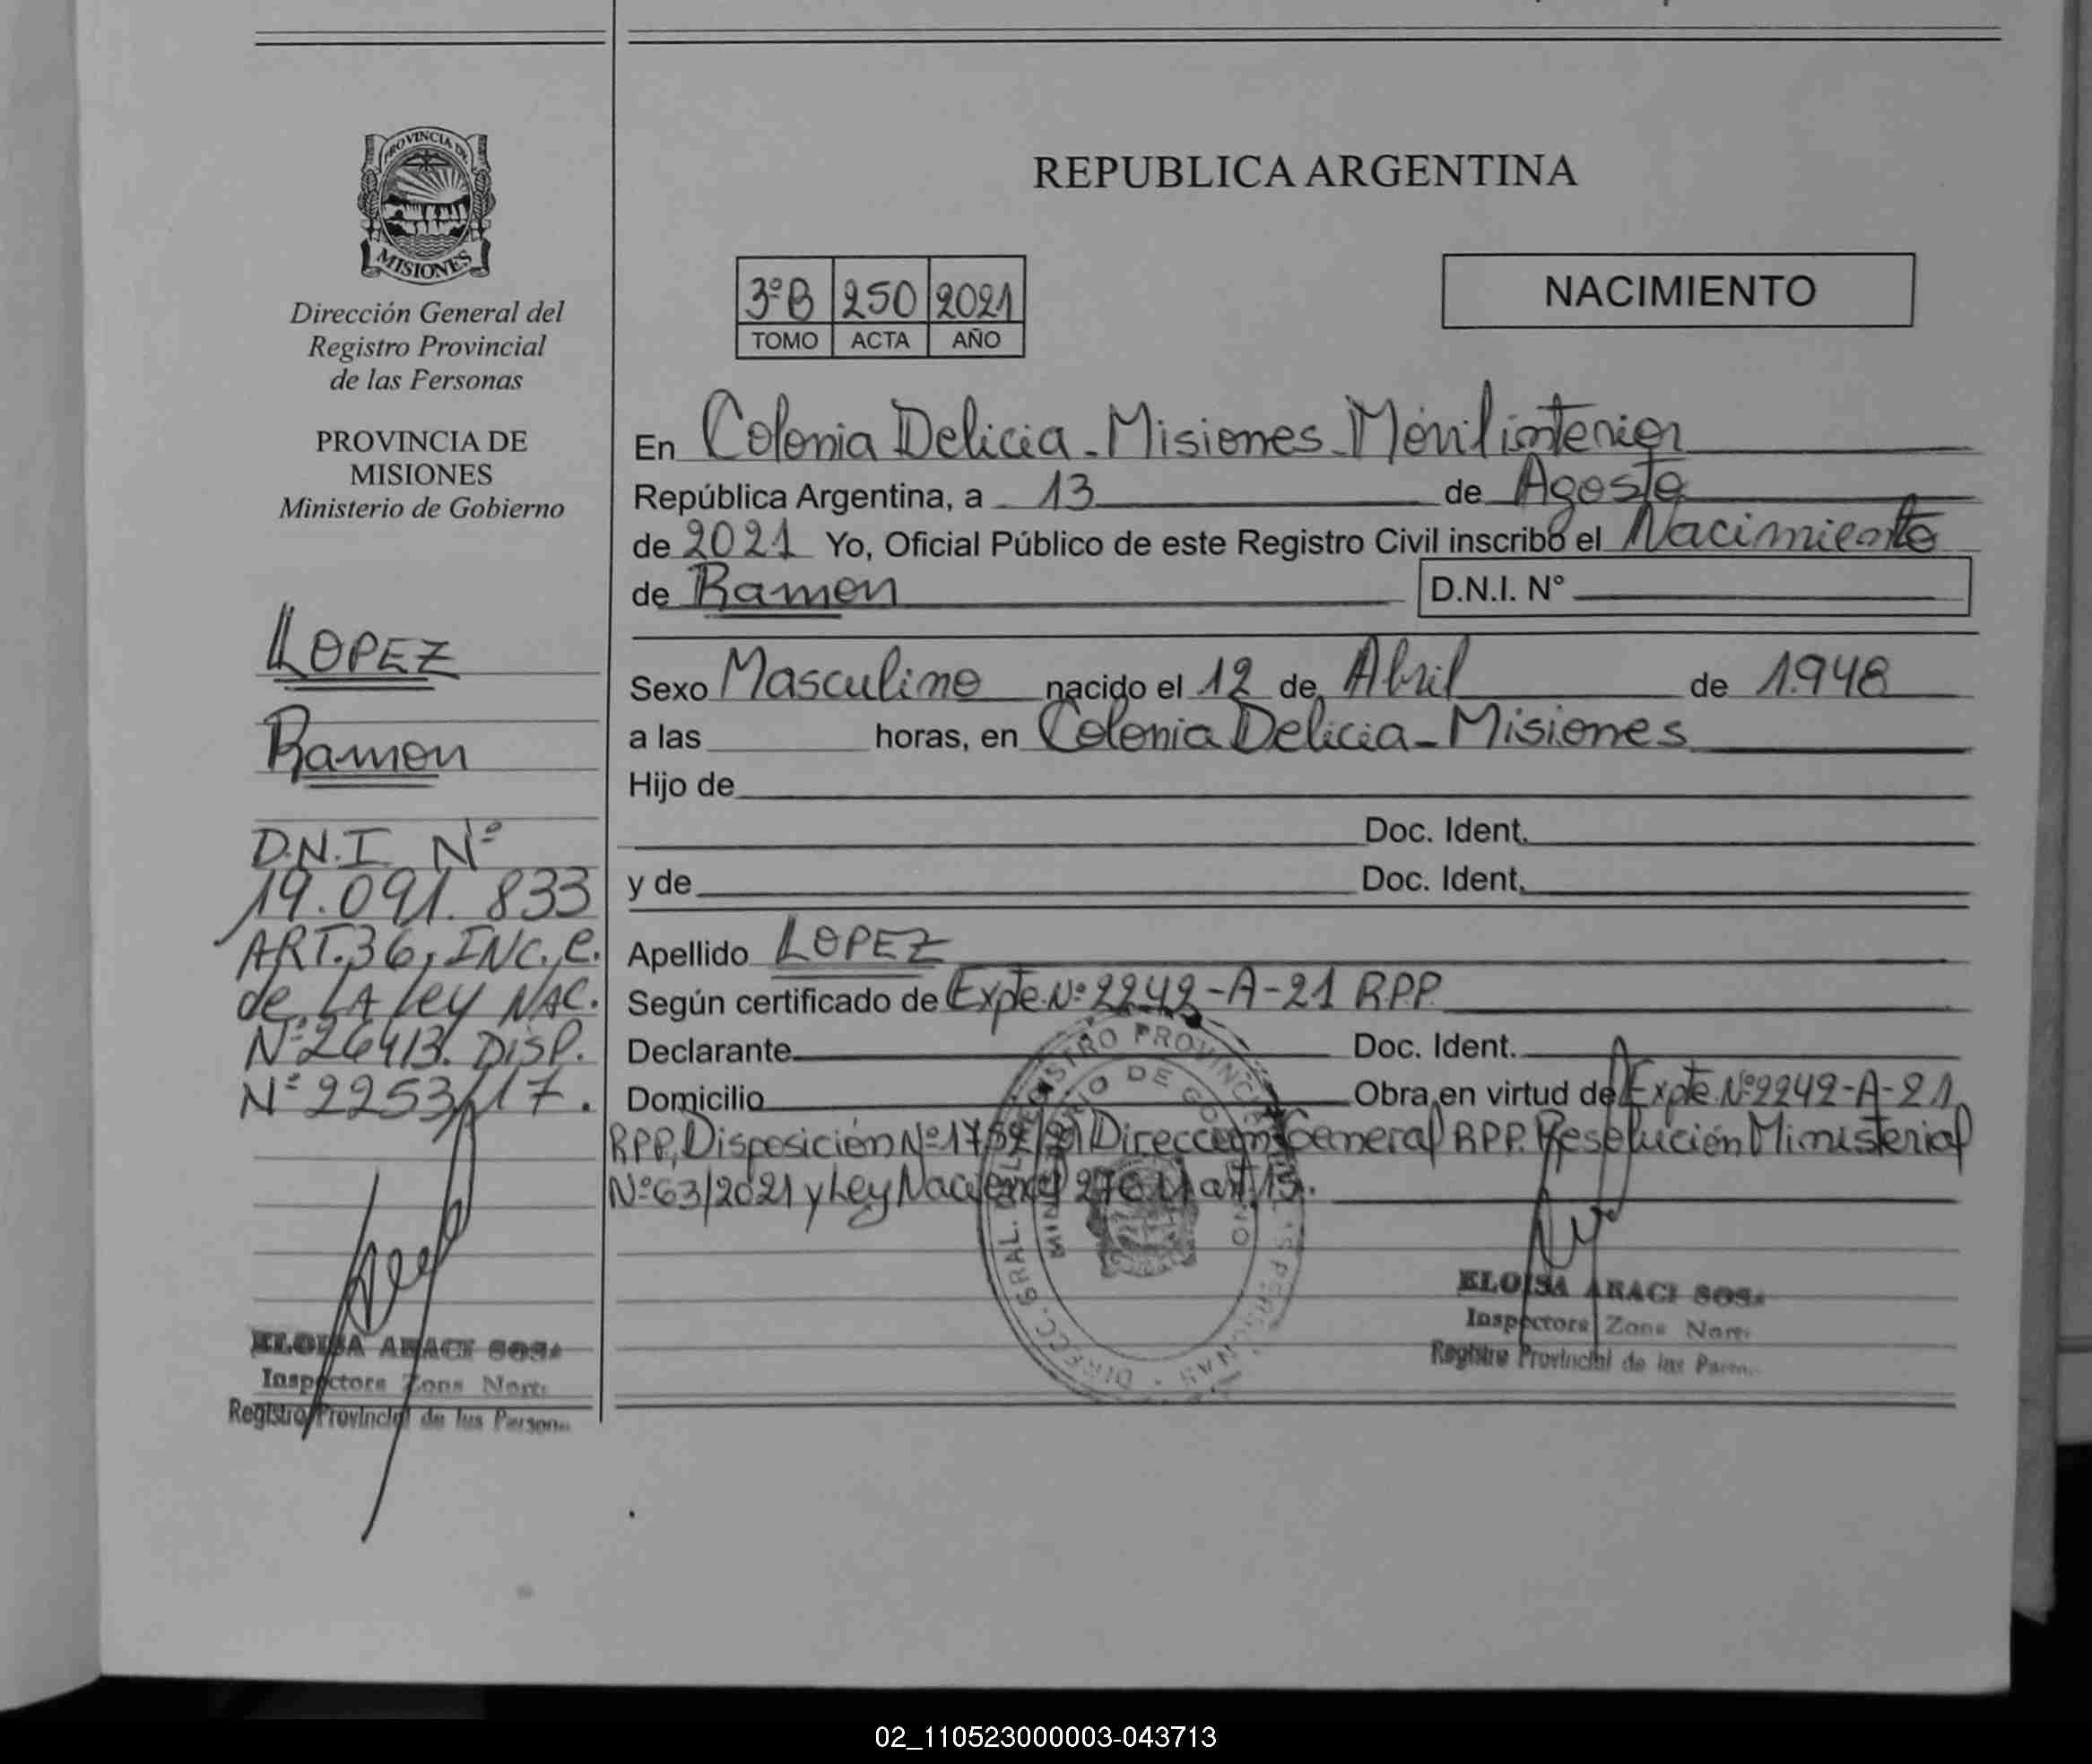 PROVINCIA DE
MISIONES
Dirección General del
Registro Provincial
de las Personas
PROVINCIA DE
MISIONES
Ministerio de Gobierno
LOPEZ
Ramon
D.N.I Nº
19.091.833
ART.36, INC. C.
de LA Ley NAC.
Nº26413. DISP.
Nº 2253/17.
ELOISA ARACI SOSA
Inspectora Zona Norte
Registro Provincial de las Person
REPUBLICA ARGENTINA
3ºB 250 2021
TOMO ACTA AÑO
NACIMIENTO
En Colonia Delicia - Misiones - Móvil interior
República Argentina, a 13 de Agosto
de 2021 Yo, Oficial Público de este Registro Civil inscribo el Nacimiento
de Ramon D.N.I. Nº
Sexo Masculino nacido el 12 de Abril de 1.948
a las horas, en Colonia Delicia - Misiones
Hijo de
Doc. Ident.
y de Doc. Ident.
Apellido LOPEZ
Según certificado de Expte. Nº 2242-A-21 RPP
Declarante Doc. Ident.
Domicilio Obra en virtud de Expte. Nº2242-A-21
RPP, Disposición Nº Dirección General RPP. Resolución Ministerial
Nº63/2021 y Ley Nacional art. 15.
DIREC. GRAL. REGISTRO PROVINCIAL PERSONAS
MINISTERIO DE GOBIERNO
ELOISA ARACI SOSA
Inspectora Zona Norte
Registro Provincial de las Person
02_110523000003-043713